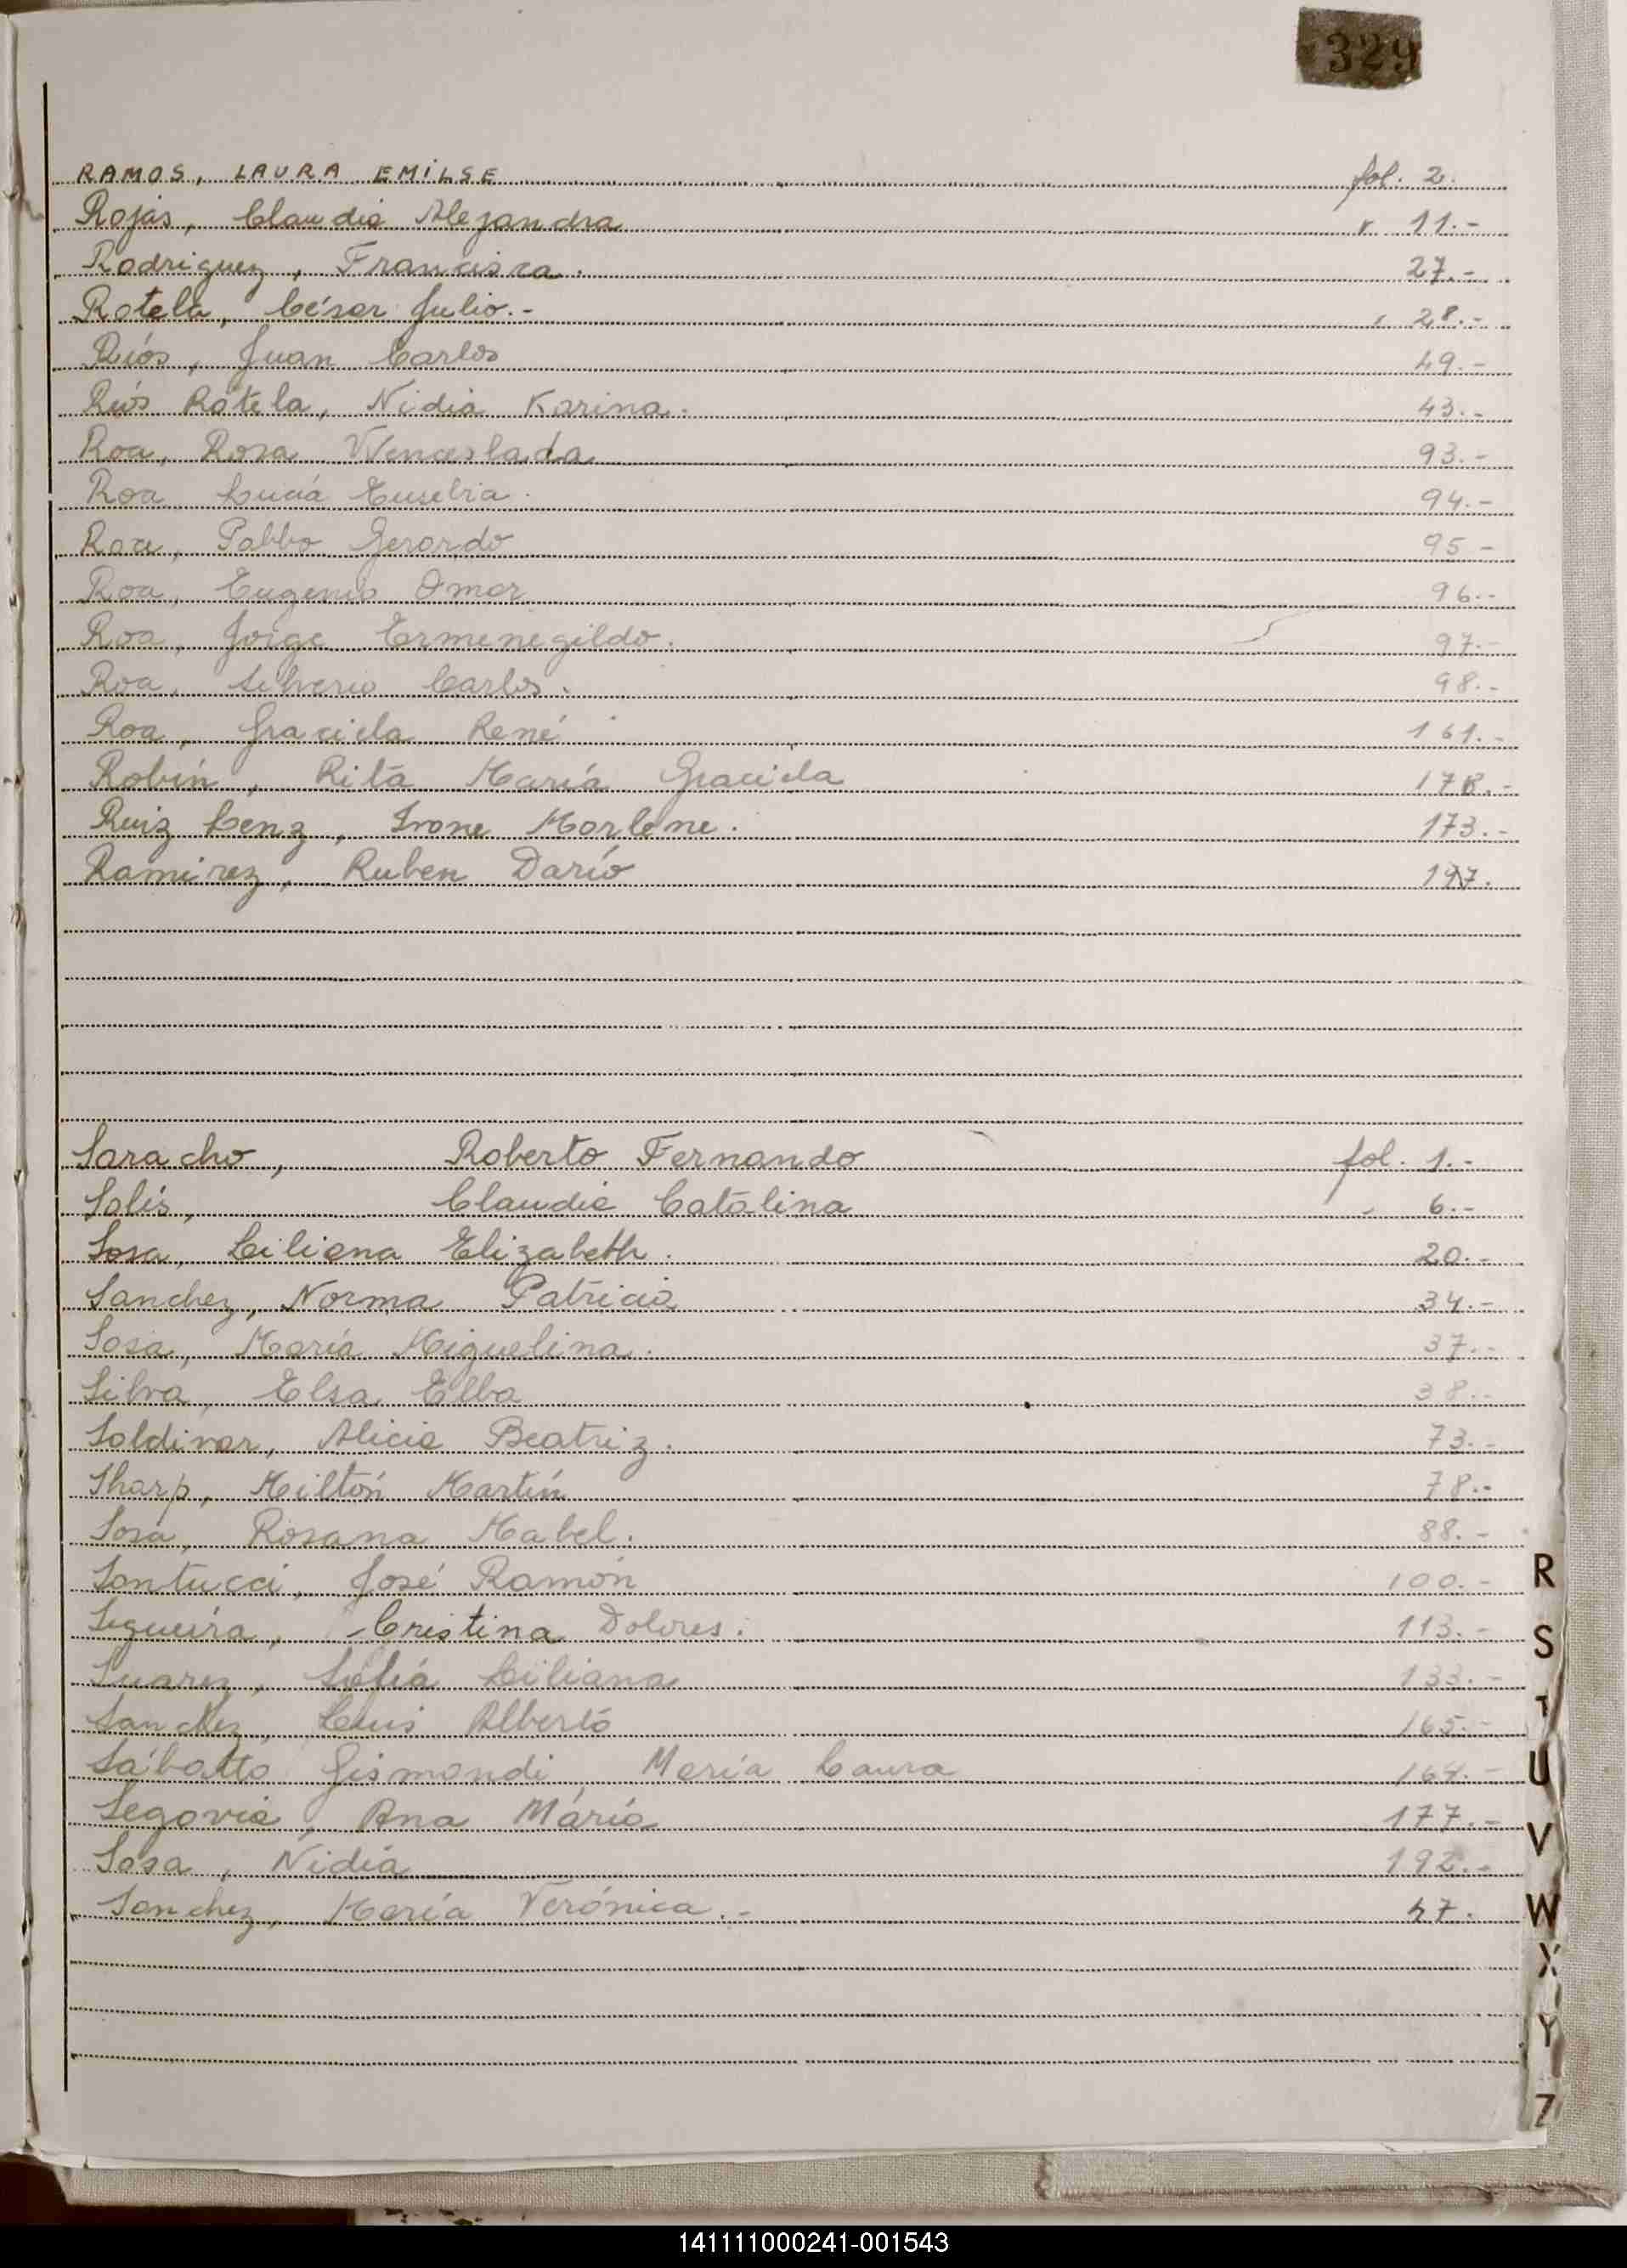 329
RAMOS, LAURA EMILSE fol. 2.
Rojas, Claudia Alejandra " 11.-
Rodriguez, Francisca. 27.-
Rotela, César Julio.- 28.-
Ríos, Juan Carlos 49.-
Ríos Rotela, Nidia Karina. 43.-
Roa, Rosa Wenceslada 93.-
Roa Lucía Eusebia. 94.-
Roa, Pabbo Gerardo 95-
Roa, Eugenio Omar 96.-
Roa, Jorge Ermenegildo. 97.-
Roa, Silverio Carlos. 98.-
Roa, Graciela René 161.-
Robín, Rita María Graciela
Ruiz Lenz, Ivone Marlene. 173.-
Ramirez, Ruben Darío
Saracho, Roberto Fernando fol. 1.-
Solís, Claudia Catalina 6.-
Sosa, Liliana Elizabeth. 20.-
Sanchez, Norma Patricia 34.-
Sosa, María Miguelina. 37.-
Silva, Elsa Elba 38.-
Saldivar, Alicia Beatriz. 73.-
Sharp, Miltón Martín 78.-
Sosa, Rosana Mabel. 88.-
Santucci, José Ramón 100.-
R
Segueira, Cristina Dolores. 113.-
S
Suarez, Sofía Liliana 133.-
T
Sanchez, Luis Alberto 165.-
Sabatto Gismondi, María Laura
U
Segovia, Ana María 177.-
V
Sosa, Nidia 192.-
Sanchez, María Verónica.- 47.
W
X
Y
Z
141111000241-001543